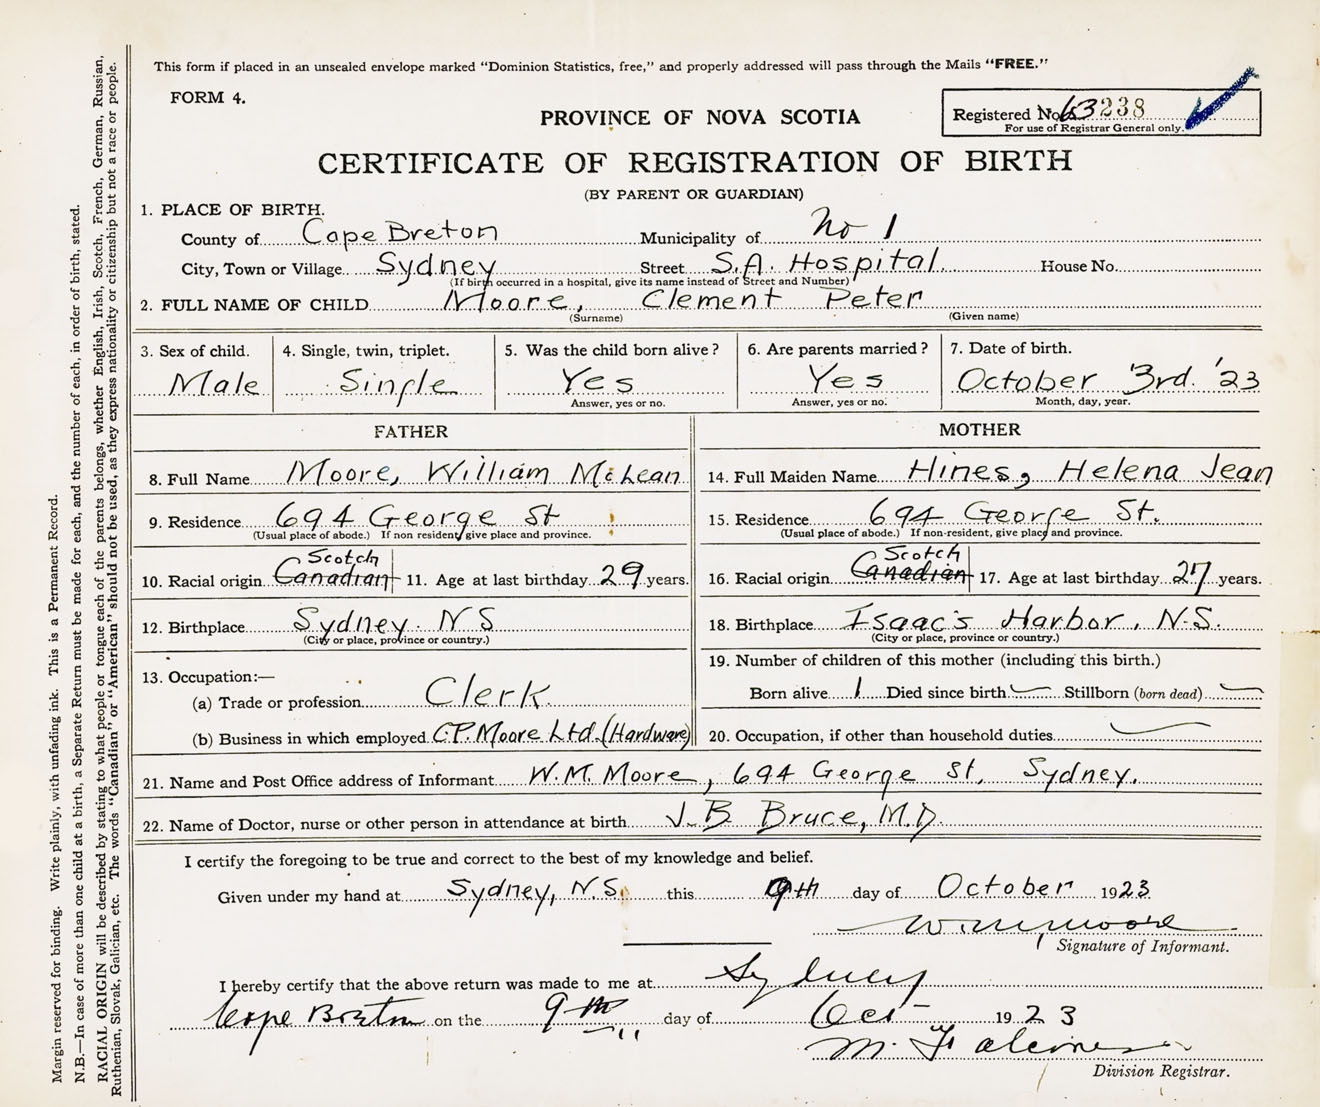 This form if placed in an unsealed envelope marked "Dominion Statistics, free," and properly addressed will pass through the Mails "FREE."
FORM 4.
Registered No. 63238
For use of Registrar General only.
PROVINCE OF NOVA SCOTIA
CERTIFICATE OF REGISTRATION OF BIRTH
(BY PARENT OR GUARDIAN)
1. PLACE OF BIRTH.
County of Cape Breton Municipality of No 1
City, Town or Village Sydney Street S.A. Hospital House No.
(If birth occurred in a hospital, give its name instead of Street and Number)
2. FULL NAME OF CHILD Moore, Clement Peter
(Surname) (Given name)
3. Sex of child. 4. Single, twin, triplet. 5. Was the child born alive? 6. Are parents married? 7. Date of birth.
Male Single Yes Yes October 3rd. '23
Answer, yes or no. Answer, yes or no. Month, day, year.
FATHER MOTHER
8. Full Name Moore, William McLean 14. Full Maiden Name Hines, Helena Jean
9. Residence 694 George St 15. Residence 694 George St.
(Usual place of abode.) If non resident, give place and province. (Usual place of abode.) If non-resident, give place and province.
Scotch Scotch
10. Racial origin Canadian 11. Age at last birthday 29 years. 16. Racial origin Canadian 17. Age at last birthday 27 years.
12. Birthplace Sydney. N S 18. Birthplace Isaac's Harbor, N.S.
(City or place, province or country.) (City or place, province or country.)
13. Occupation:— 19. Number of children of this mother (including this birth.)
(a) Trade or profession Clerk. Born alive 1 Died since birth Stillborn (born dead)
(b) Business in which employed C.P. Moore Ltd. (Hardware) 20. Occupation, if other than household duties
21. Name and Post Office address of Informant W.M. Moore, 694 George St, Sydney.
22. Name of Doctor, nurse or other person in attendance at birth J.B Bruce, M.D.
I certify the foregoing to be true and correct to the best of my knowledge and belief.
Given under my hand at Sydney, N.S. this 9th day of October 1923
W M Moore
Signature of Informant.
I hereby certify that the above return was made to me at Sydney
Cape Breton on the 9th day of Oct 1923
M.
Division Registrar.
Margin reserved for binding. Write plainly, with unfading ink. This is a Permanent Record.
N.B.—In case of more than one child at a birth, a Separate Return must be made for each, and the number of each, in order of birth, stated.
RACIAL ORIGIN will be described by stating to what people or tongue each of the parents belongs, whether English, Irish, Scotch, French, German, Russian,
Ruthenian, Slovak, Galician, etc. The words "Canadian" or "American" should not be used, as they express nationality or citizenship but not a race or people.